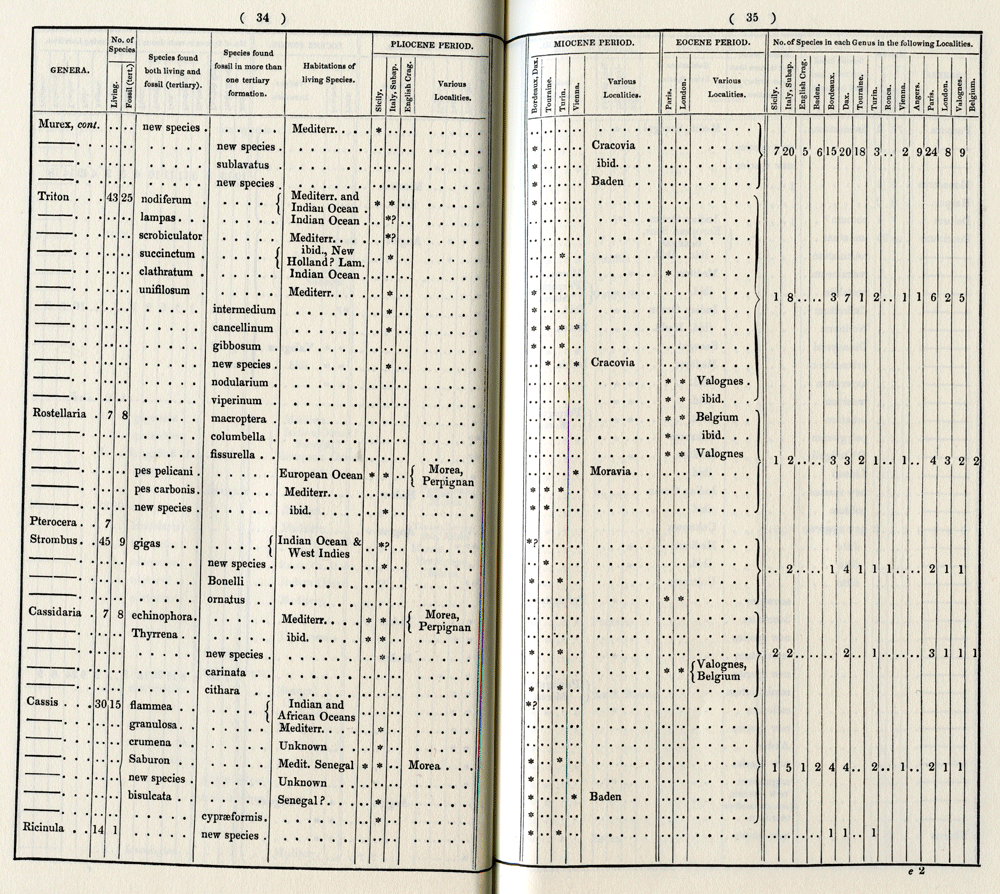 ( 34 )
GENERA.
No. of Species
Living.
Fossil (tert.)
Species found both living and fossil (tertiary).
Species found fossil in more than one tertiary formation.
Habitations of living Species.
PLIOCENE PERIOD.
Sicily.
Italy, Subap.
English Crag.
Various Localities.
Murex, cont. . . . . new species . Mediterr. . . . *
new species .
sublavatus
new species .
Triton . . . 43 25 nodiferum . . . . . { Mediterr. and Indian Ocean . * *
lampas . . . Indian Ocean . *?
scrobiculator Mediterr. . . *?
succinctum . { ibid., New Holland? Lam. *
clathratum . Indian Ocean .
unifilosum . Mediterr. . . . *
intermedium *
cancellinum *
gibbosum
new species . *
nodularium .
viperinum .
Rostellaria . 7 8 macroptera .
columbella .
fissurella . .
pes pelicani . European Ocean * * { Morea, Perpignan
pes carbonis . Mediterr. . .
new species . ibid. . . . *
Pterocera . . 7
Strombus . . 45 9 gigas . . . { Indian Ocean & West Indies *?
new species . *
Bonelli . .
ornatus . .
Cassidaria . 7 8 echinophora . Mediterr. . . . * * { Morea, Perpignan
Thyrrena . . ibid. . . . * *
new species . *
carinata . .
cithara . .
Cassis . . . 30 15 flammea . . { Indian and African Oceans
granulosa . Mediterr. . . *
crumena . . Unknown . . *
Saburon . . Medit. Senegal * * Morea . . .
new species . Unknown . .
bisulcata . . Senegal ? . . . *
cypræformis . *
Ricinula . . 14 1 new species .
( 35 )
MIOCENE PERIOD.
Bordeaux, Dax.
Touraine.
Turin.
Vienna.
Various Localities.
EOCENE PERIOD.
Paris.
London.
Various Localities.
No. of Species in each Genus in the following Localities.
Sicily.
Italy, Subap.
English Crag.
Baden.
Bordeaux.
Dax.
Touraine.
Turin.
Ronca.
Vienna.
Angers.
Paris.
London.
Valognes.
Belgium.
* Cracovia . .
7 20 5 6 15 20 18 3 . . 2 9 24 8 9
* ibid. . . .
* Baden . . .
*
*
*
* 1 8 . . . . 3 7 1 2 . . 1 1 6 2 5
*
* * * *
* *
* * Cracovia . .
* * Valognes .
* * ibid. . .
* * Belgium .
* ibid. . .
* * Valognes
1 2 . . . . 3 3 2 1 . . 1 . . 4 3 2 2
* Moravia . .
* * *
* *
*?
*
. . 2 . . . . 1 4 1 1 1 . . . . 2 1 1
* *
* *
* * 2 2 . . . . . . 2 . . 1 . . . . . . 3 1 1 1
* * { Valognes, Belgium
* *
*?
* *
1 5 1 2 4 4 . . 2 . . 1 . . 2 1 1
*
* * Baden . . .
*
* * . . . . . . . . 1 1 . . 1
e 2